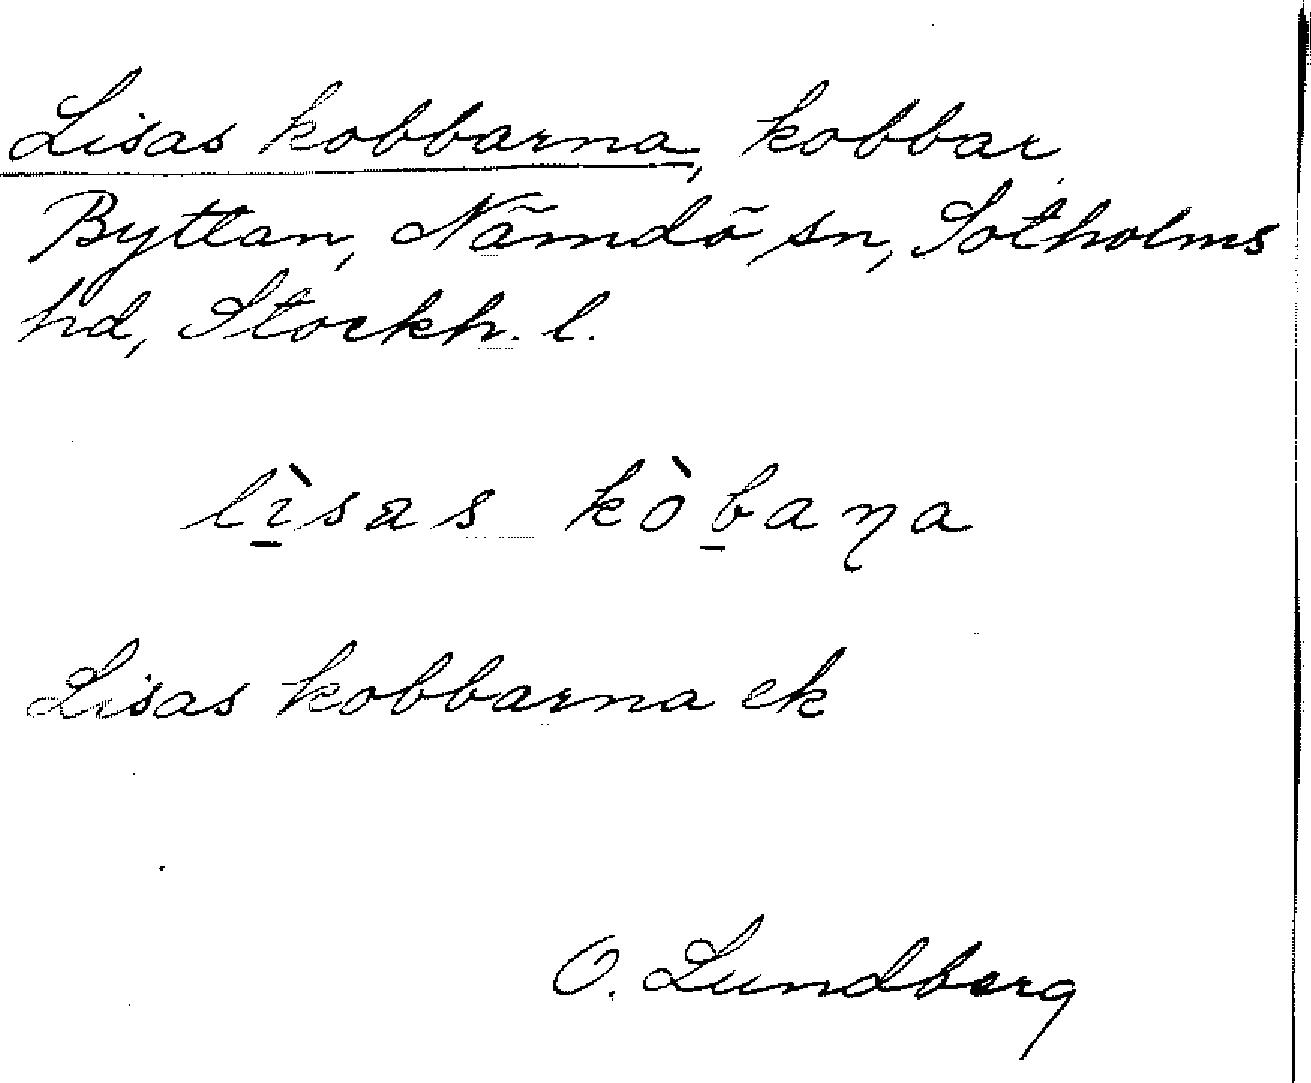 Lisas kobbarna, kobbar
Byttan, Nämdö sn, Sotholms
hd, Stockh. l.
lı̀sas kòbaɳa
Lisas kobbarna ek
O. Lundberg